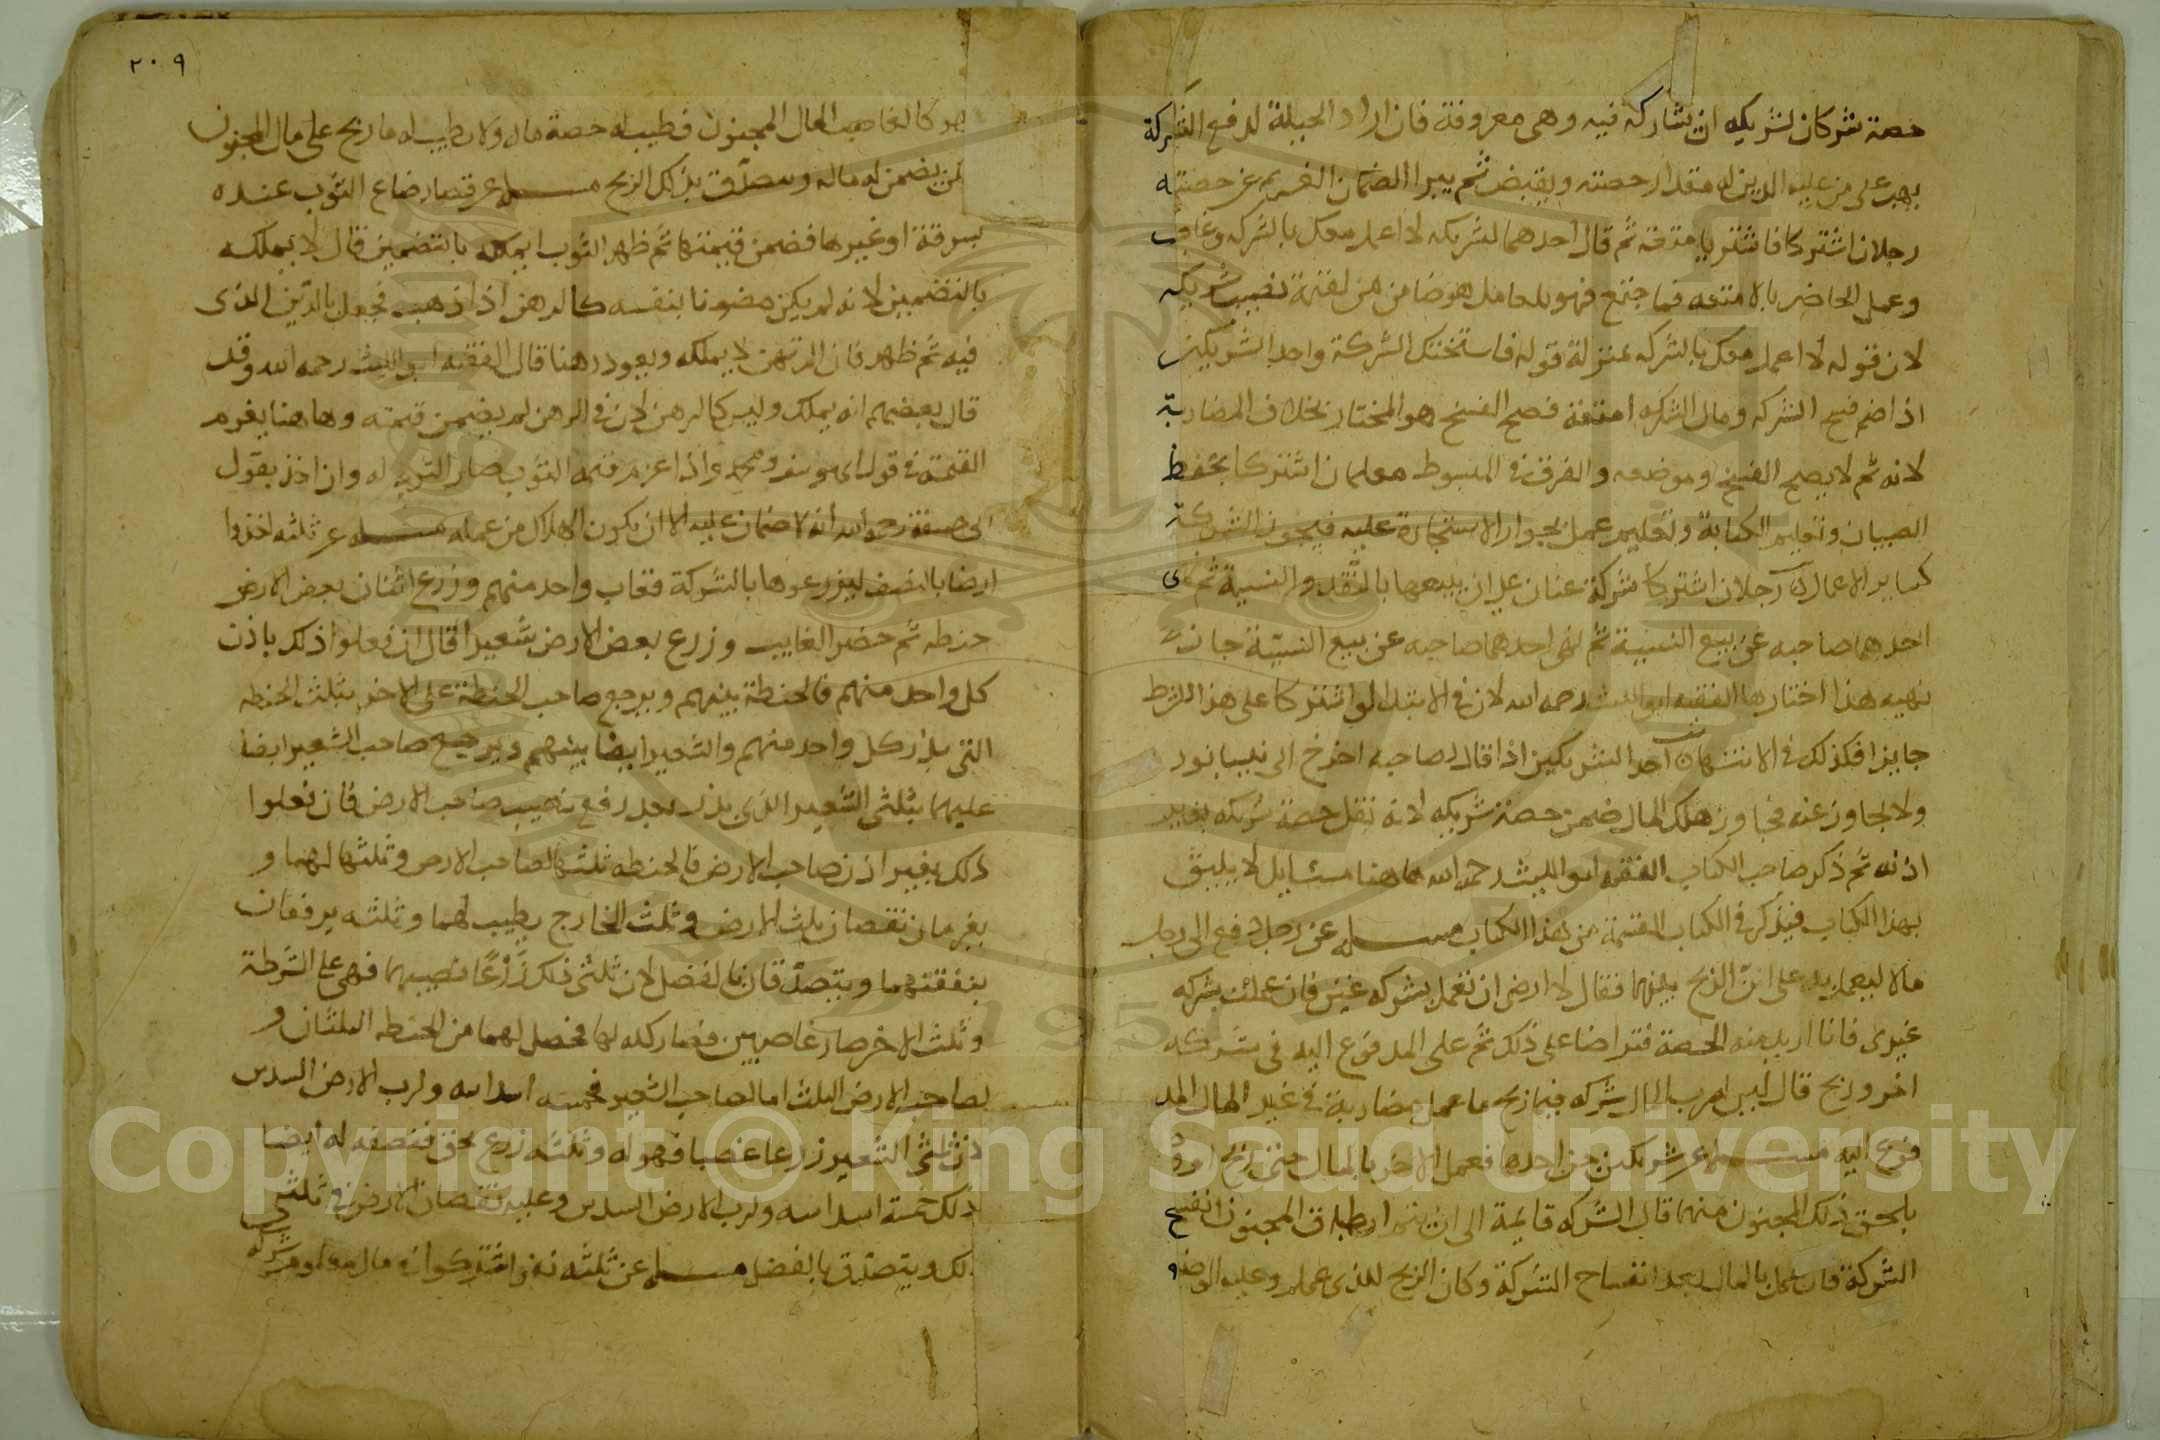 حصة شركان لشريكه ان يشاركه فيه وهى معروفة فان اراد الحيلة لدفع الشركة
يهب على من عليه الدين له مقدار حصته ويقبض ثم يبرا الغريم عن حصته
رجلان اشتركا فاشتريا امتعة ثم قال احدهما لشريكه لا اعمل معك بالشركة وغاب
وعمل الحاضر بالامتعه فما اجتمع فهو للعامل وهو ضامن لقيمة نصيب شريكه
لان قوله لا اعمل معك بالشركه بمنزلة قوله فاسختك الشركة واحد الشريكين
اذا فسخ الشركه ومال الشركه امتعة فصح الفسخ هو المختار بخلاف المضاربة
لانه ثم لا يصح الفسخ وموضعه والفرق فى المبسوط معلمان اشتركا بحفظ
الصبيان وتعليم الكتابة وتعليم عمل بجواز الاستجارة عليه فيجوز الشركة
كساير الاعمال رجلان اشتركا شركة عنان على ان يبيعها بالنقد والنسية ثم نهى
احدهما صاحبه عن بيع النسية ثم نهى احدهما صاحبه عن بيع النسيئة جاز
نهيه هذا اختارها الفقيه ابو الليث رحمه الله لان فى الابتدا لو اشتركا على هذا الشرط
جايزا فكذلك فى الانتهاء احد الشريكين اذا قال لصاحبه اخرج الى نيسابور
ولا تجاوز عنه فجاوز هلك المال ضمن حصة شريكه لانه نقل حصة شريكه بغير
اذنه ثم ذكر صاحب الكتاب الفقيه ابو الليث رحمه الله هاهنا مسايل لا يليق
بهذا الكتاب فيذكر فى الكتاب القسمة من هذا الكتاب مسله عن رجل دفع الى رجل
مالا ليعمل به على ان الربح بينهما فقال لا ارضى ان تعمل بشركه غيرى فان عملت بشركه
غيرى فانا اريد منه الحصة فتراضا على ذلك ثم عمل المدفوع اليه فى شركه
اخر وربح قال ليس لرب المال شركه فيما ربح ما عمل مضاربة فى غير المال المد
فوع اليه مسله عن شريكين جن احدهما فعمل الاخر بالمال حتى ربح او
يلحق ذلك المجنون منهما قال الشركه قايمة الى ان يتم اطباق المجنون انفسخ
الشركة فان عمل بالمال بعد انفساخ الشركة وكان الربح للذى عمله وعليه الوضيعه
٢٠٩
هو كالغاصب لمال المجنون فطيب له حصة ماله ولا يطيب له ما ربح على مال المجنون
لمن يضمن له ماله ويتصدق بذلك الربح مسله عن قصار ضاع الثوب عنده
بسرقة او غيرها فضمن قيمتها ثم ظهر الثوب ايملكه بالتضمين قال لا يملكه
بالتضمين لانه لم يكن مضمونا بنفسه كالرهن اذا ذهب فجعل بالدين الذى
فيه ثم ظهر فان المرتهن لا يملكه ويعود رهنا قال الفقيه ابو الليث رحمه الله وقد
قال بعضهم انه يملك وليس كالرهن لان فى الرهن لم يضمن قيمته وهاهنا يغرم
القيمة فى قول ابى يوسف ومحمد واذا غرم قيمه الثوب صار الثوب له وان اخذ بقول
ابى حنيفة رحمه الله انه لا ضمان عليه الا ان يكون الهلاك من عمله مسله عن ثلثه اخذوا
ارضا بالنصف ليزرعوها بالشركة فغاب واحد منهم وزرع اثنان بعض الارض
حنطه ثم حضر الغايب وزرع بعض الارض شعيرا قال ان فعلوا ذلك باذن
كل واحد منهم فالحنطة بينهم ويرجع صاحب الحنطة على الاخر بثلث الحنطه
التى بذر كل واحد منهم والشعير ايضا بينهم ويرجع صاحب الشعير ايضا
عليهما بثلثى الشعير الذى بذر بعد رفع نصيب صاحب الارض فان فعلوا
ذلك بغير اذن صاحب الارض فالحنطه ثلثها لصاحب الارض وثلثها لهما و
يغرمان نقصان ثلث الارض وثلث الخارج يطيب لهما وثلثه يرفعان
بنفقتهما ويتصدقان بالفضل لان ثلثى ذلك زرعا نصيبهما فهى على الشرطة
وثلث الاخر صار غاصبين فصار كله لهما فحصل لهما من الحنطه الثلثان و
لصاحب الارض الثلث اما لصاحب الشعير فخمسه اسداسه ولرب الارض السدس
لان ثلثى الشعير زرعا غصبا فهو له وثلثه زرع بحق فنصفه له ايضا
فذلك خمسة اسداسه ولرب الارض السدس وعليه نقصان الارض فى ثلثى
ذلك ويتصدق بالفضل مسله عن ثلثه نفر اشتركوا فى مال معلوم شركه
Copyright © King Saud University
1957